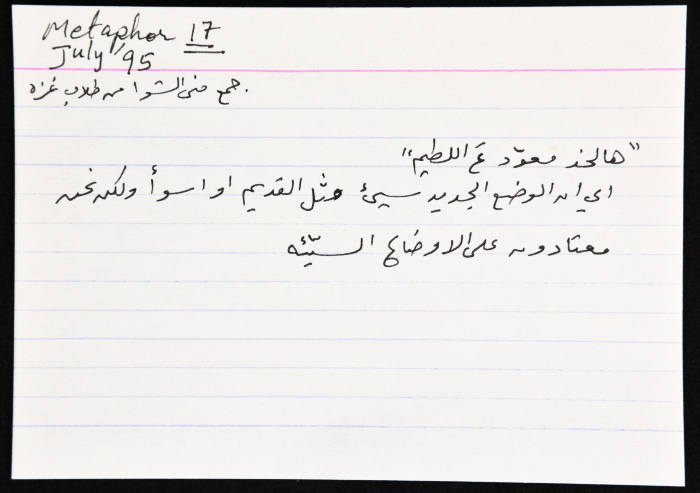 Metaphor 17
July '95
جمع منى الشوا من طلاب غزه.
"هالخد معوّد عَ اللطيم"
اي ان الوضع الجديد سيئ مثل القديم او اسوأ ولكن نحن
معتادون على الاوضاع السيّئه